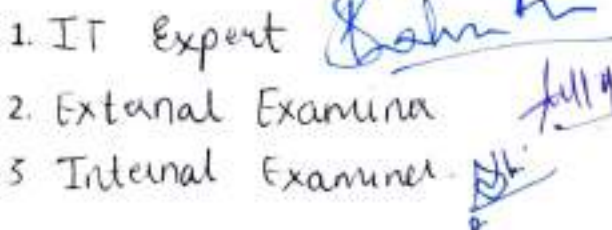 1. IT Expert
2. External Examiner
3 Internal Examiner